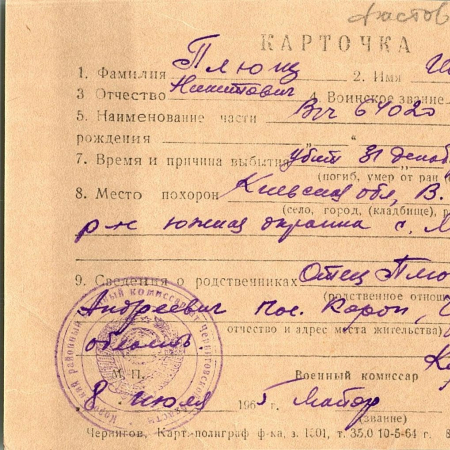 Фастов
КАРТОЧКА
1. Фамилия Плющ 2. Имя
3 Отчество Никитович 4. Воинское звание
5. Наименование части В/ч 64020
рождения
7. Время и причина выбытия убит 31 декаб
(погиб, умер от ран
8. Место похорон Киевская обл, В.
(село, город, (кладбище), р
р-н южная окраина с. М
9. Сведения о родственниках Отец Плю
(родственное отношен
Андреевич пос. Короп,
отчество и адрес места жительства)
область.
М. П. Военный комиссар
8 июля 1965 г. Майор
(звание)
Чернигов, Карт.-полиграф ф-ка, з. 1501, т. 35.0 10-5-64 г.